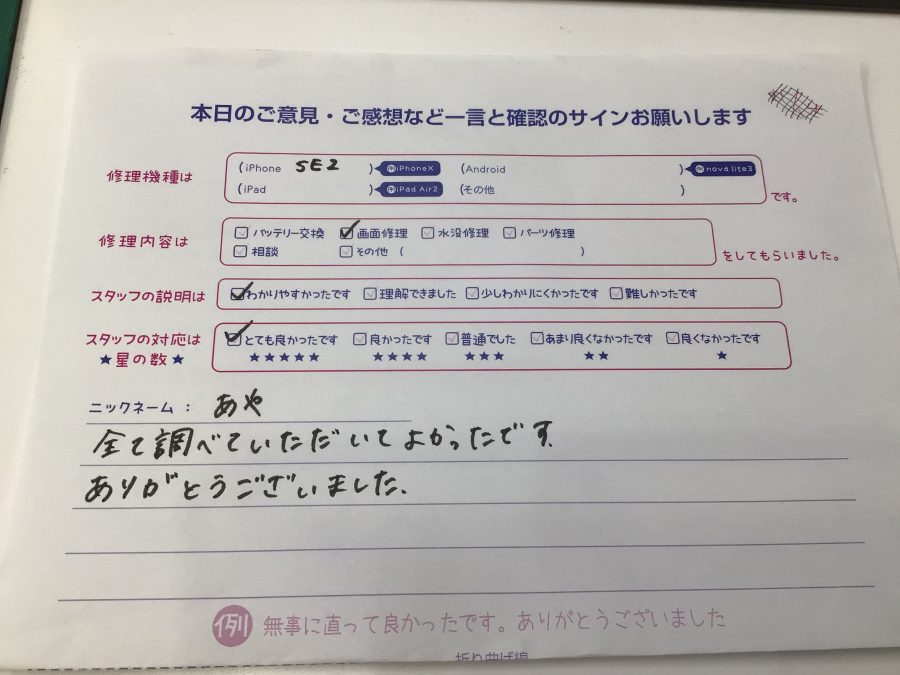 本日のご意見・ご感想など一言と確認のサインお願いします
修理機種は (iPhone SE2 ) 例iPhoneX (Android ) 例nova lite3
(iPad ) 例iPad Air2 (その他 ) です。
修理内容は バッテリー交換 画面修理 水没修理 パーツ修理
相談 その他 ( ) をしてもらいました。
スタッフの説明は わかりやすかったです 理解できました 少しわかりにくかったです 難しかったです
スタッフの対応は とても良かったです 良かったです 普通でした あまり良くなかったです 良くなかったです
★星の数★ ★★★★★ ★★★★ ★★★ ★★ ★
ニックネーム： あや
全て調べていただいてよかったです.
ありがとうございました.
例 無事に直って良かったです。ありがとうございました
折り曲げ線